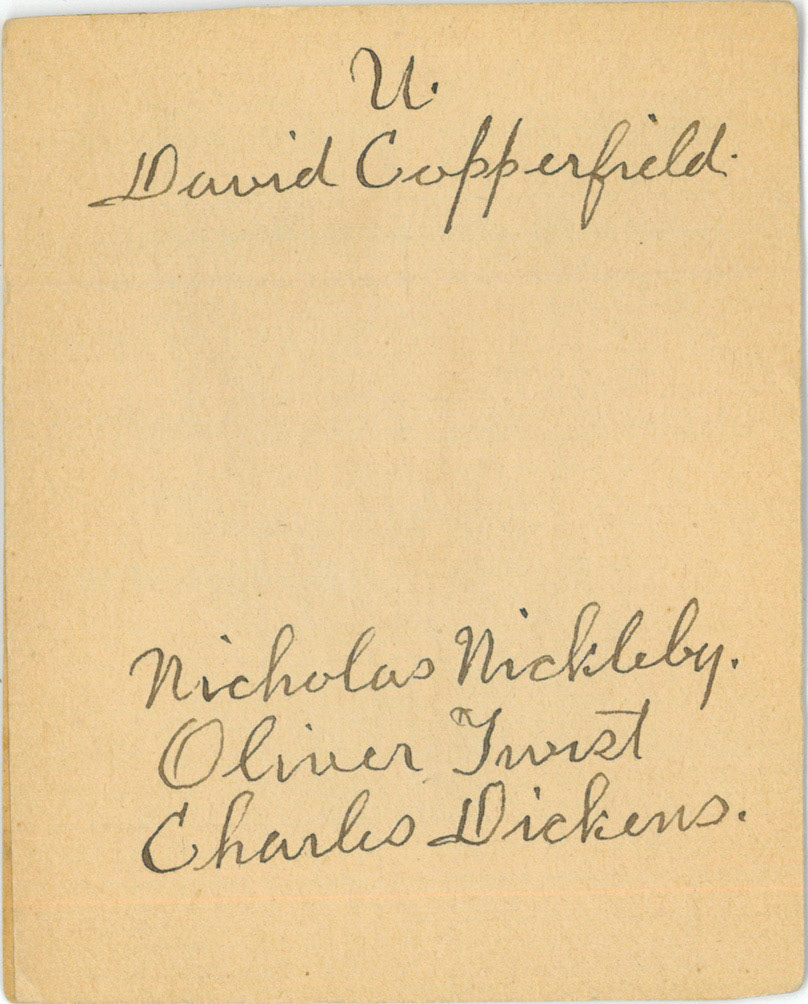 U.
David Copperfield.
Nicholas Nickleby.
Oliver Twist
Charles Dickens.